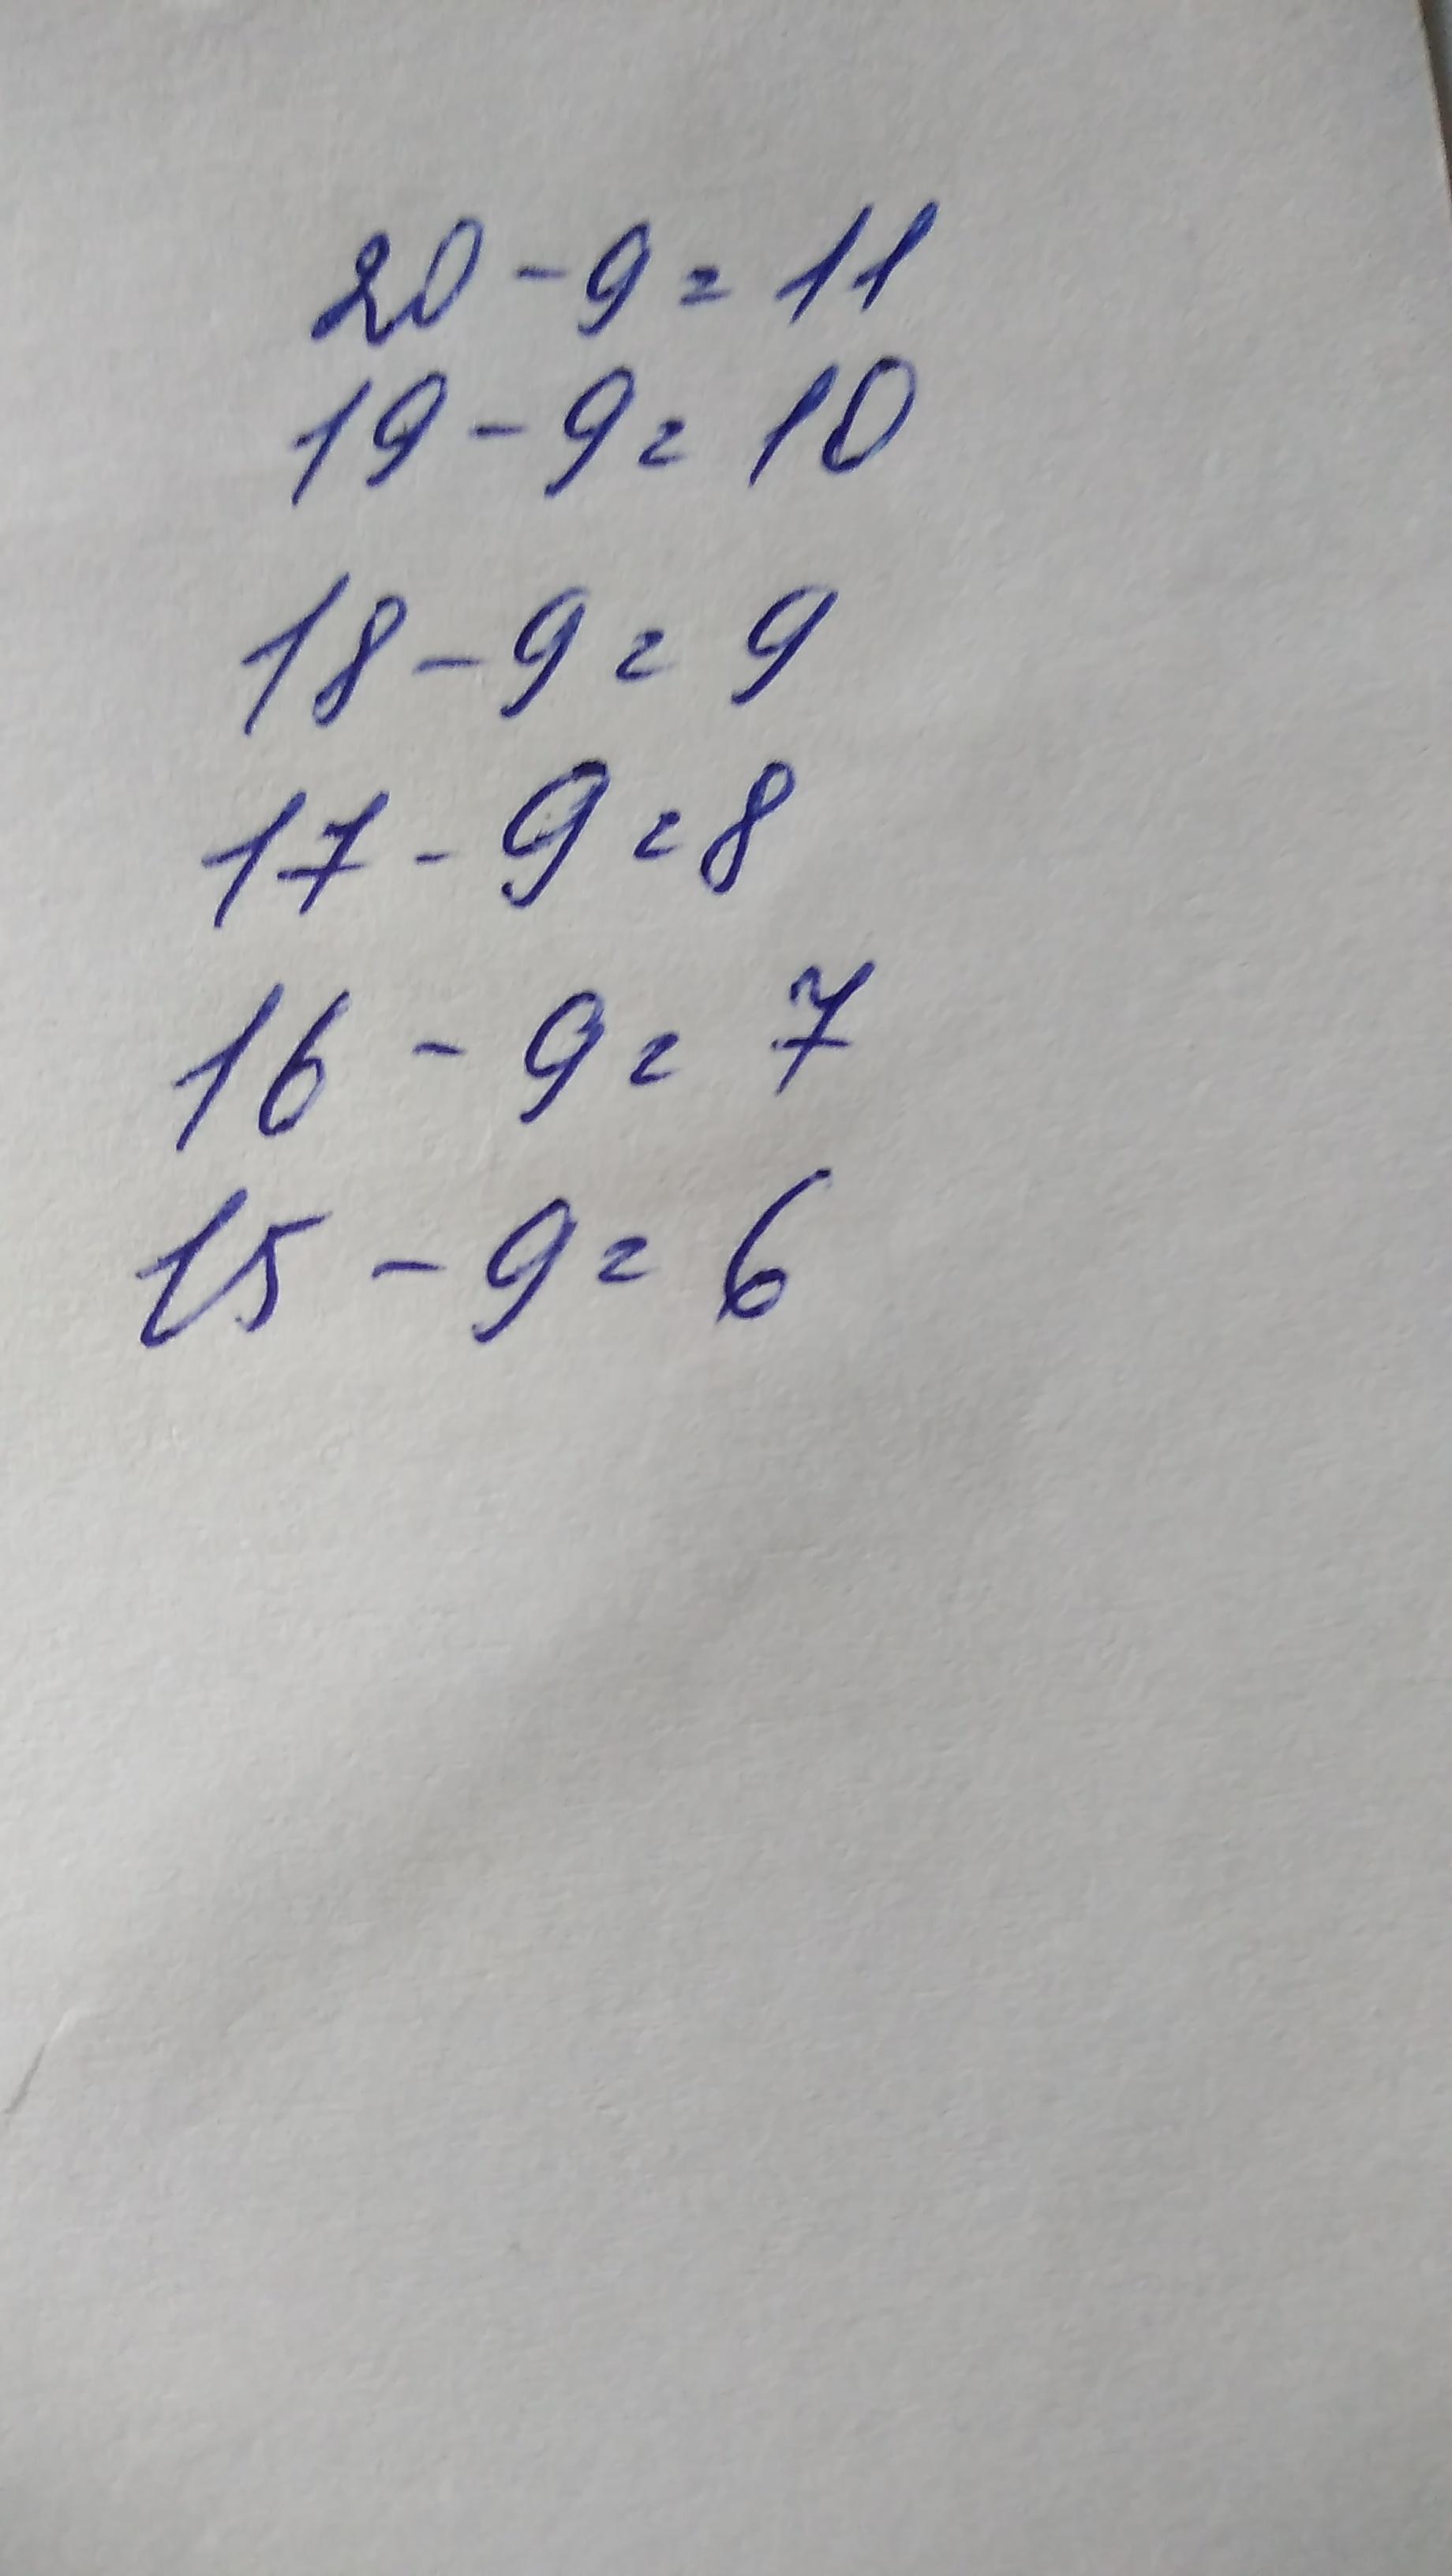 20 - 9 = 11
19 - 9 = 10
18 - 9 = 9
17 - 9 = 8
16 - 9 = 7
15 - 9 = 6